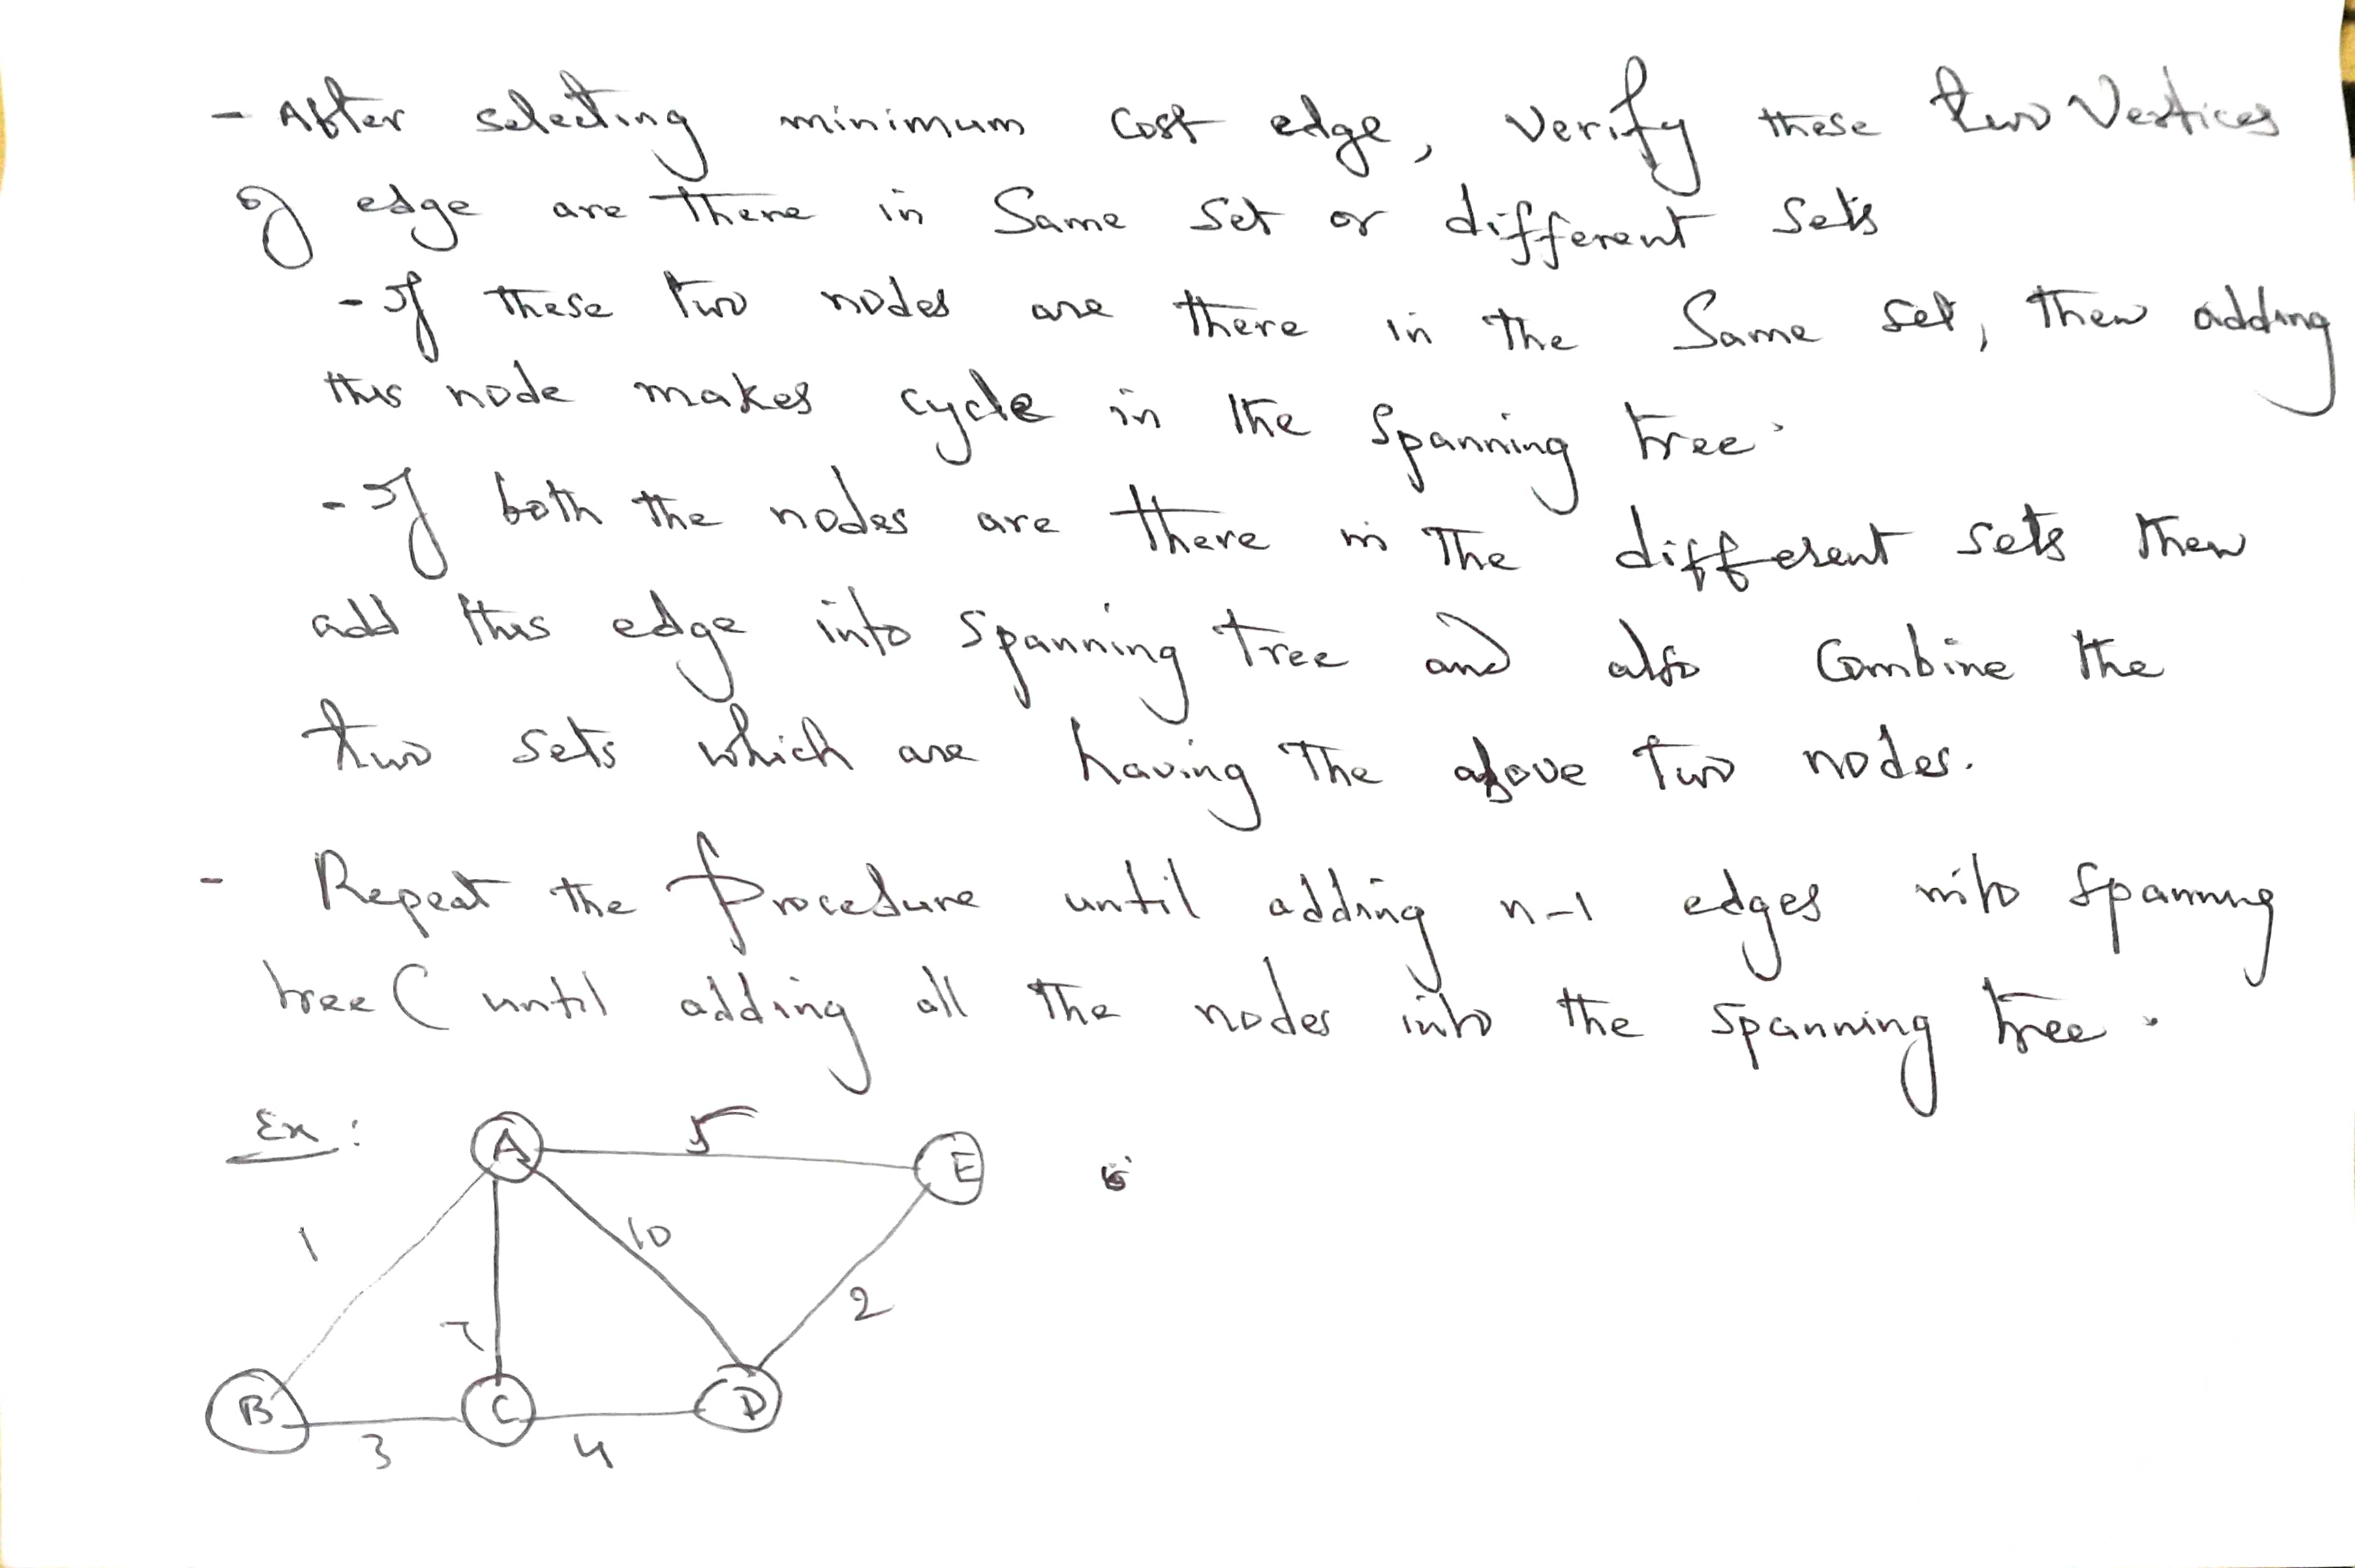 - After selecting minimum cost edge, verify these two vertices
of edge are there in same set or different sets
- If these two nodes are there in the same set, then adding
this node makes cycle in the spanning tree.
- If both the nodes are there in the different sets then
add this edge into spanning tree and also combine the
two sets which are having the above two nodes.
- Repeat the procedure until adding n-1 edges into spanning
tree ( until adding all the nodes into the spanning tree.
Ex:
A 5 E
1 10
7 2
B C D
3 4